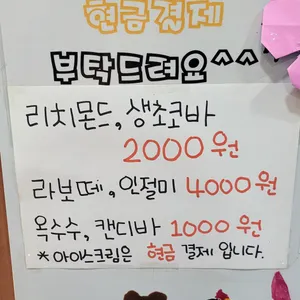 현금결제
부탁드려요^^
리치몬드, 생초코바
2000원
라보떼, 인절미 4000원
옥수수, 캔디바 1000원
*아이스크림은 현금 결제 입니다.